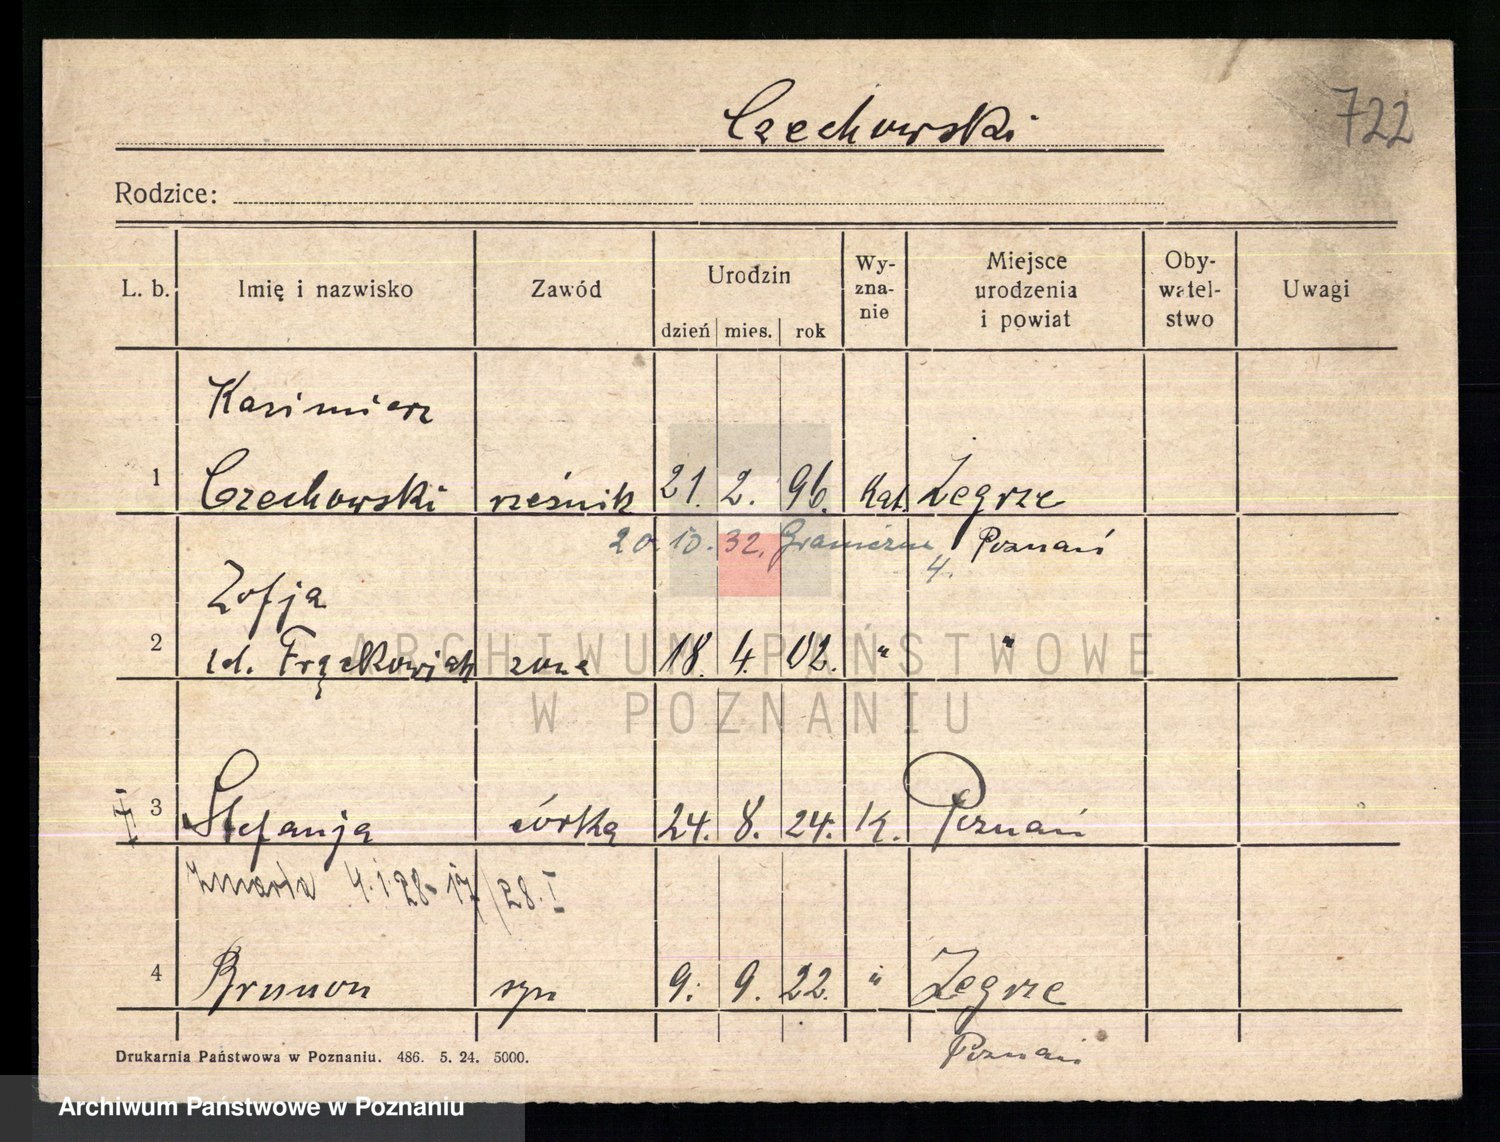 Czechowski
722
Rodzice:
L. b. Imię i nazwisko Zawód Urodzin dzień mies. rok Wy-zna-nie Miejsce urodzenia i powiat Oby-watel-stwo Uwagi
Kazimierz
1 Czechowski rzeźnik 21. 2. 96. Kat. Żegrze
20.10.32. Graniczna 4. Poznań
Zofja
2 id. Frąckowiak żona 18. 4. 02. " "
3 Stefanja córka 24. 8. 24. K. Poznań
Zmarła 4.1.28 - 17/28. I
4 Brunon syn 9. 9. 22. " Żegrze
Poznań
Drukarnia Państwowa w Poznaniu. 486. 5. 24. 5000.
ARCHIWUM PAŃSTWOWE
W POZNANIU
Archiwum Państwowe w Poznaniu